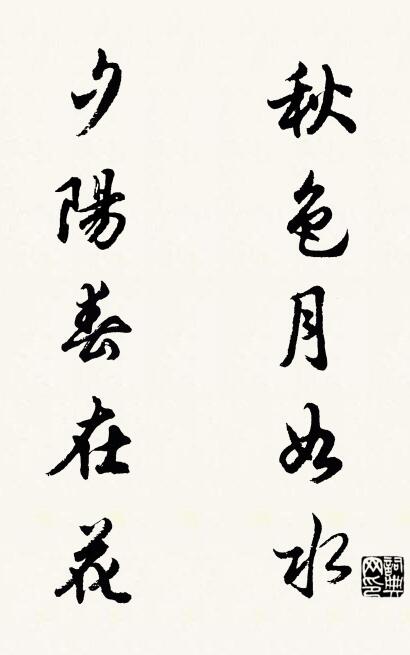 秋色月如水
夕陽春在花
詞典网印